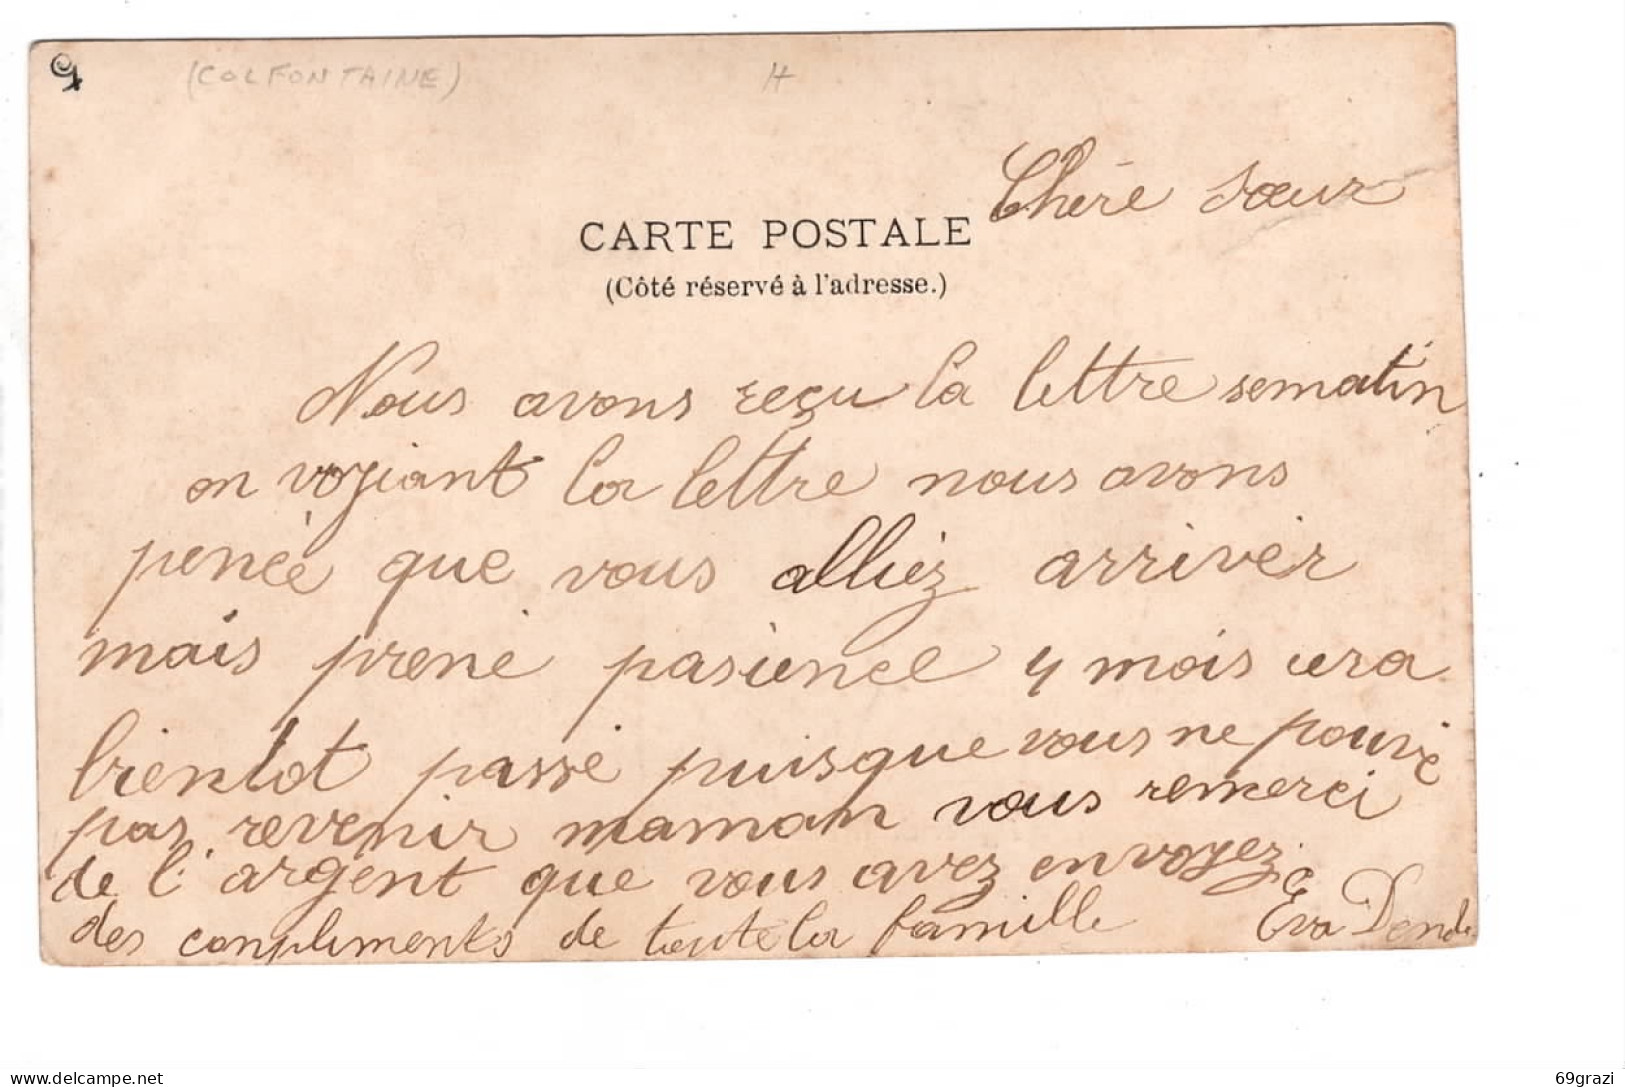 (COLFONTAINE)
H
Chère sœur
CARTE POSTALE
(Côté réservé à l'adresse.)
Nous avons reçu la lettre sematin
on voyiant la lettre nous avons
pencé que vous alliez arriver
mais prené pasience 4 mois cera
bientot passé puisque vous ne pouvé
pas revenir maman vous remerci
de l'argent que vous avez envoyez
des conpliments de toute la famille Eva
delcampe.net
69grazi